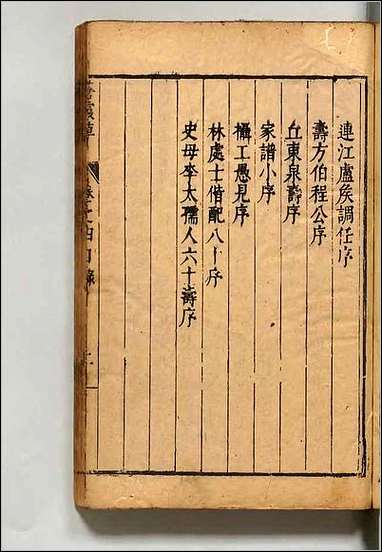 連江盧矦調任序
壽方伯程公序
丘東泉壽序
家譜小序
攝工愚見序
林處士偕配八十序
史母李太孺人六十壽序
卷之四目錄
二